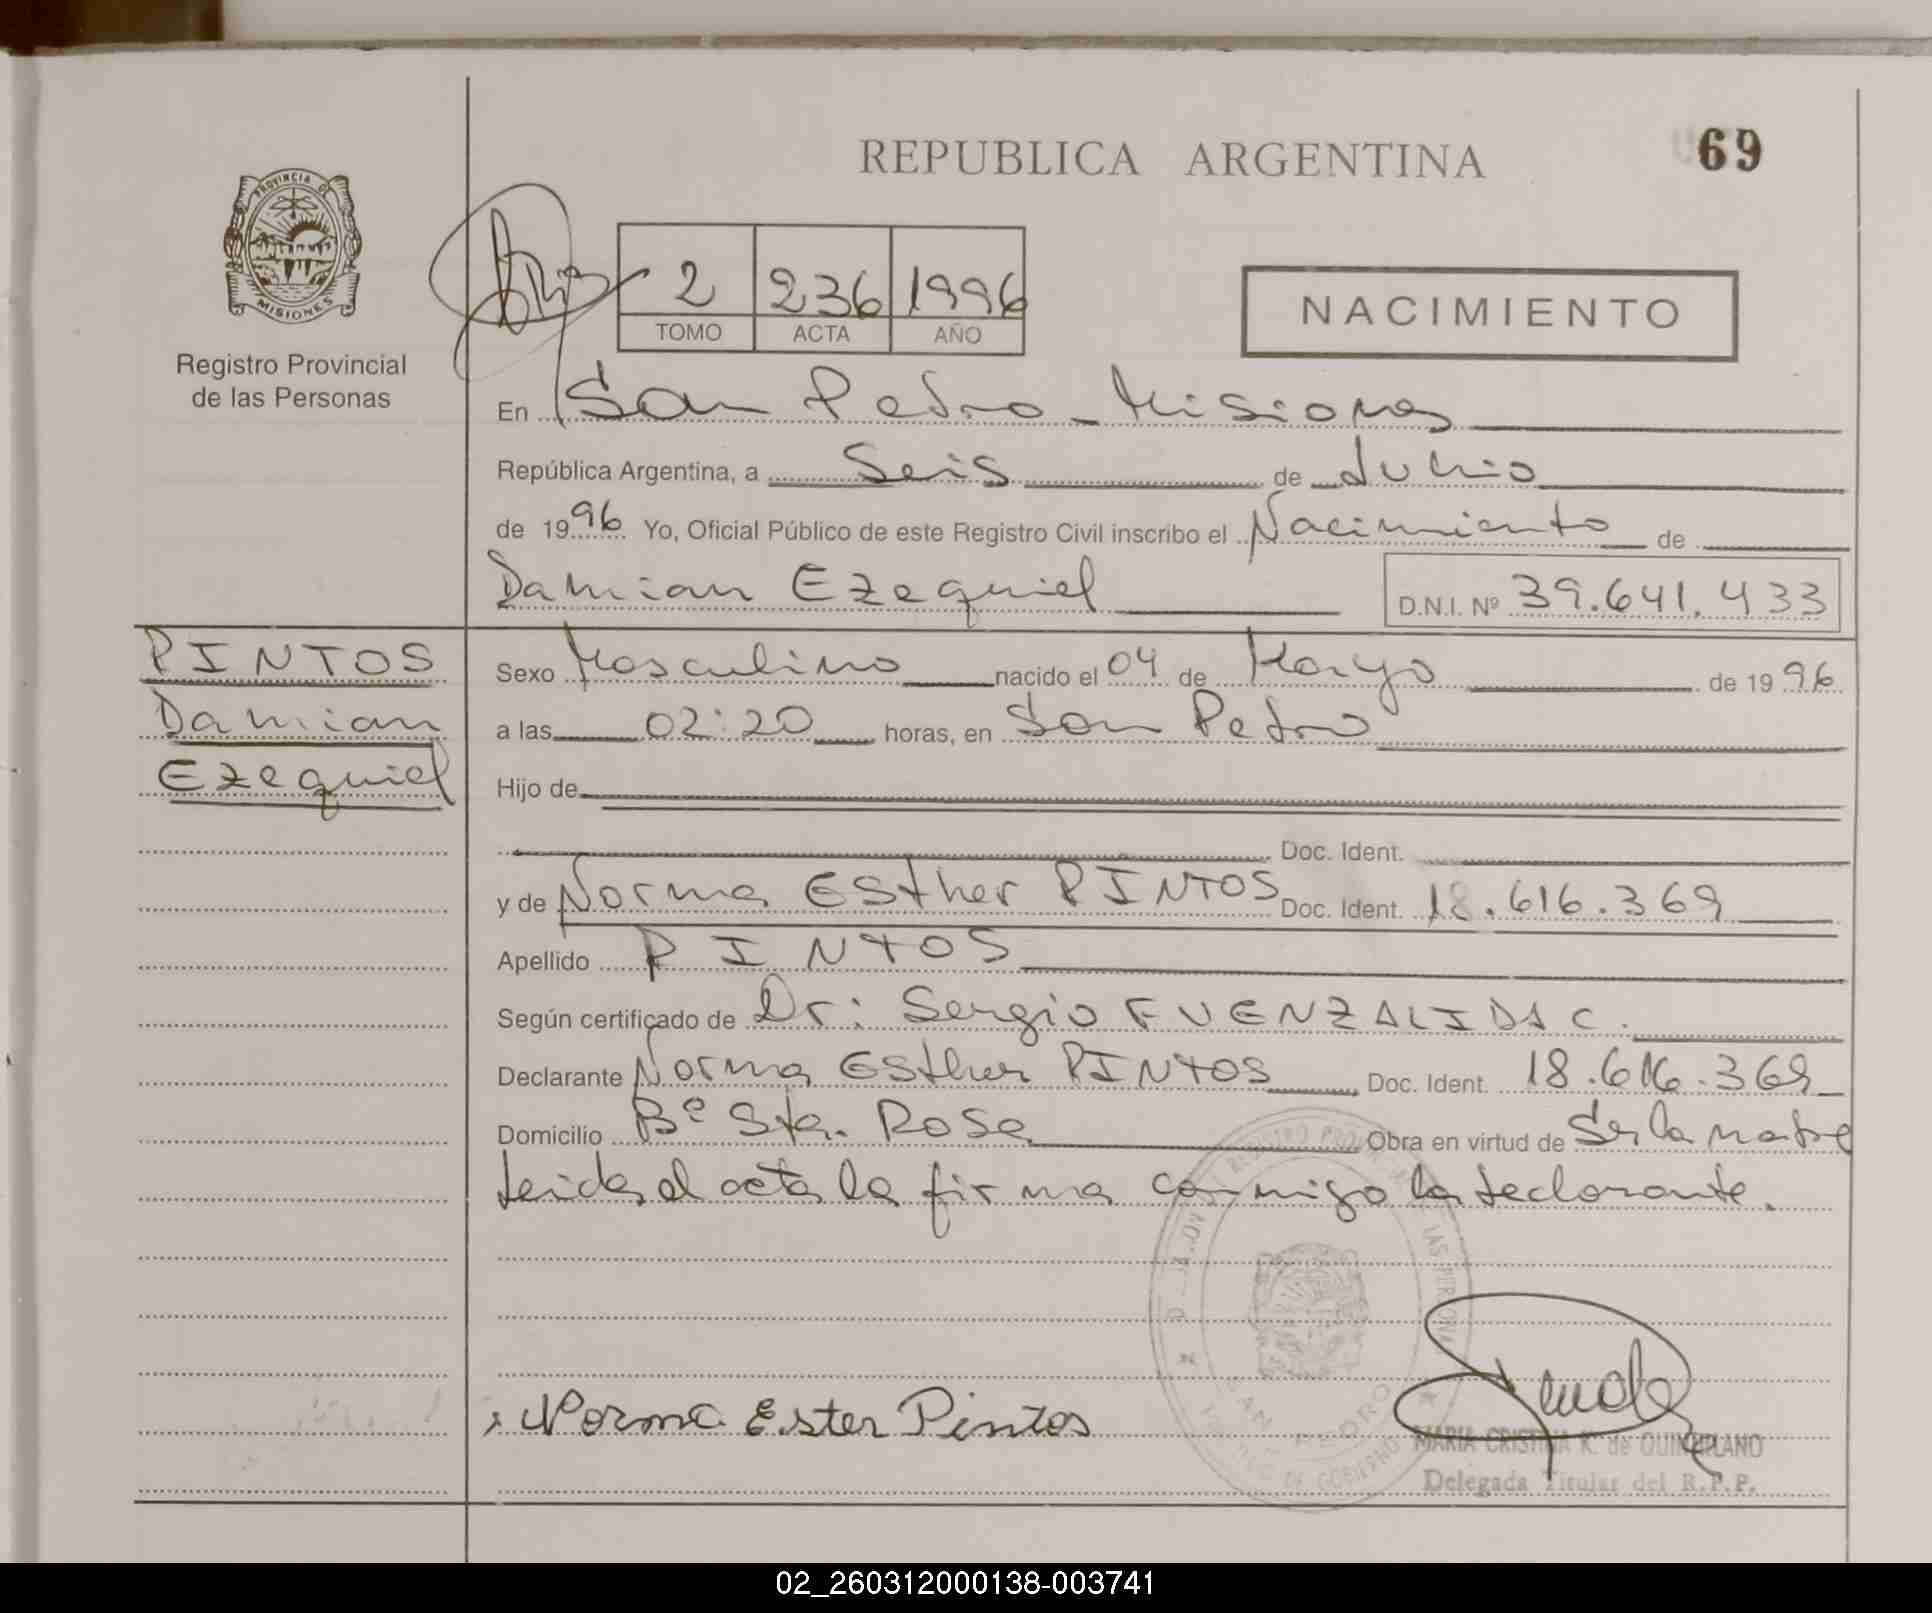 REPUBLICA ARGENTINA
69
PROVINCIA DE
MISIONES
Registro Provincial
de las Personas
2 236 1996
TOMO ACTA AÑO
NACIMIENTO
En San Pedro - Misiones
República Argentina, a Seis de Junio
de 1996 Yo, Oficial Público de este Registro Civil inscribo el Nacimiento de
Damian Ezequiel D.N.I. Nº 39.641.433
PINTOS
Damian
Ezequiel
Sexo Masculino nacido el 04 de Mayo de 1996
a las 02:20 horas, en San Pedro
Hijo de
Doc. Ident.
y de Norma Esther PINTOS Doc. Ident. 18.616.369
Apellido PINTOS
Según certificado de Dr: Sergio FUENZALIDA C.
Declarante Norma Esther PINTOS Doc. Ident. 18.616.369
Domicilio Bº Sta. Rosa Obra en virtud de Ser la madre
Leida el acta la firma conmigo la declarante.
Norma Ester Pintos
SAN PEDRO
MARIA CRISTINA K. de
Delegada Titular del R.P.P.
02_260312000138-003741